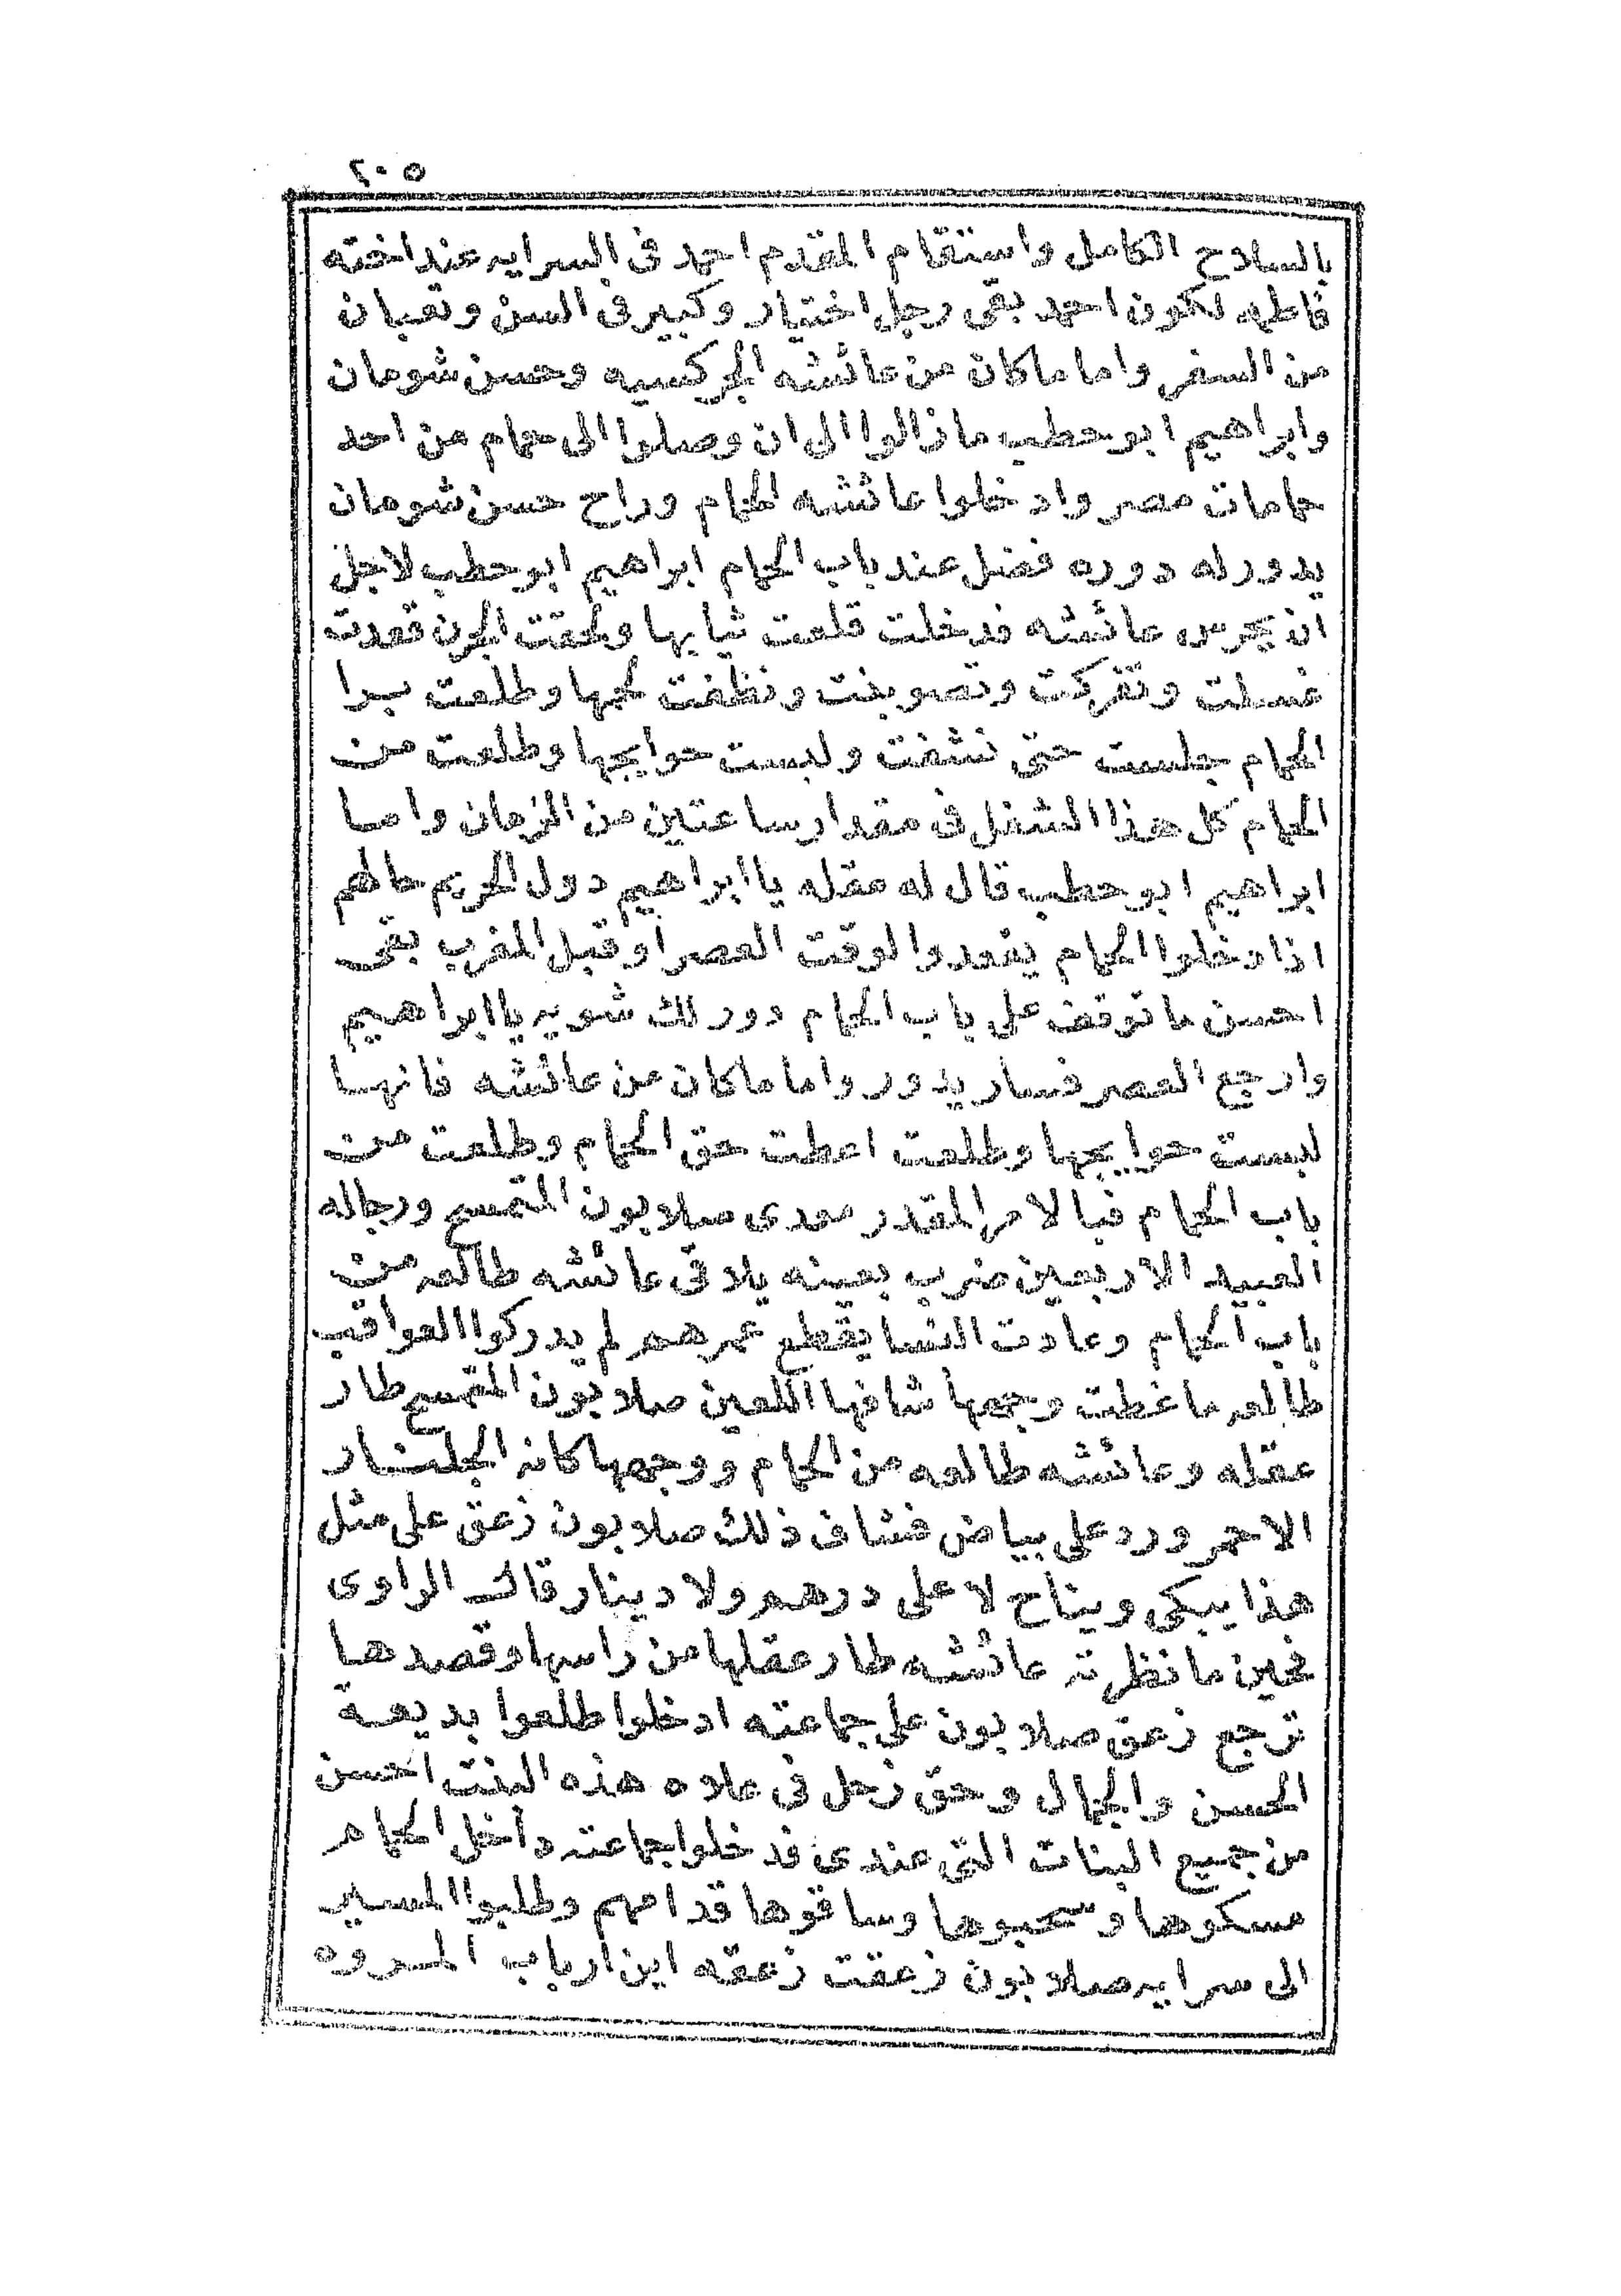 ٢٠٥
بالسلاح الكامل واستقام المقدم احمد فى السرايه عند اخته
فاطمه لكون احمد بقى رجل اختيار وكبير فى السن وتعبان
من السفر واما ماكان من عائشه الجركسيه وحسن شومان
وابراهيم ابو حطب ما زالوا الى ان وصلوا الى حمام من احد
حمامات مصر وادخلوا عائشه الحمام وراح حسن شومان
يدور له دوره فضل عند باب الحمام ابراهيم ابو حطب لاجل
ان يحرس عائشه فدخلت قلعت ثيابها ولحقت الجرن قعدت
غسلت وتفركت وتصوبنت ونظفت لحمها وطلعت برا
الحمام جلست حتى نشفت ولبست حوايجها وطلعت من
الحمام كل هذا الشغل فى مقدار ساعتين من الزمان واما
ابراهيم ابو حطب قال له عقله يا ابراهيم دول الحريم حالهم
اذا دخلوا الحمام يقعدوا لوقت العصر او قبل المغرب بقى
احسن ما توقف على باب الحمام دور لك شويه يا ابراهيم
وارجع العصر فسار يدور واما ماكان من عائشه فانها
لبست حوايجها وطلعت اعطت حق الحمام وطلعت من
باب الحمام فبالامر المقدر معدى صلابون المقمسح ورجاله
العبيد الاربعين ضرب بعينه يلاقى عائشه طالعه من
باب الحمام وعادت النسا يقطع عمرهم لم يدركوا العواقب
طالعه ما غطت وجهها شافها اللعين صلابون المقمسح طار
عقله وعائشه طالعه من الحمام ووجهها كانه الجلنار
الاحمر ورد على بياض فشاف ذلك صلابون زعق على مثل
هذا يبكى ويناح لا على درهم ولا دينار قال الراوى
فحين ما نظرته عائشه طار عقلها من راسها وقصدها
ترجع زعق صلابون على جماعته ادخلوا طلعوا بديعة
الحسن والجمال وحق زحل فى علاه هذه البنت احسن
من جميع البنات التى عندى فدخلوا جماعته داخل الحمام
مسكوها وسحبوها وساقوها قدامهم وطلبوا المسير
الى سرايه صلابون زعقت زعقه اين ارباب المروه